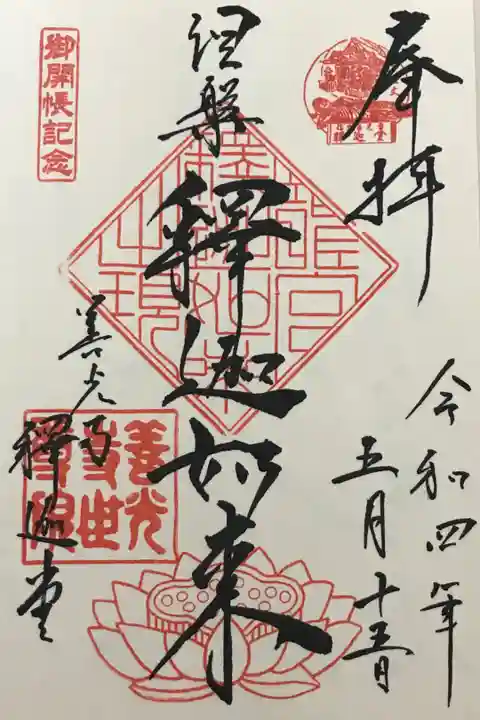 奉拝
令和四年
五月十五日
涅槃
釋迦如来
善光寺
釋迦堂
御開帳記念